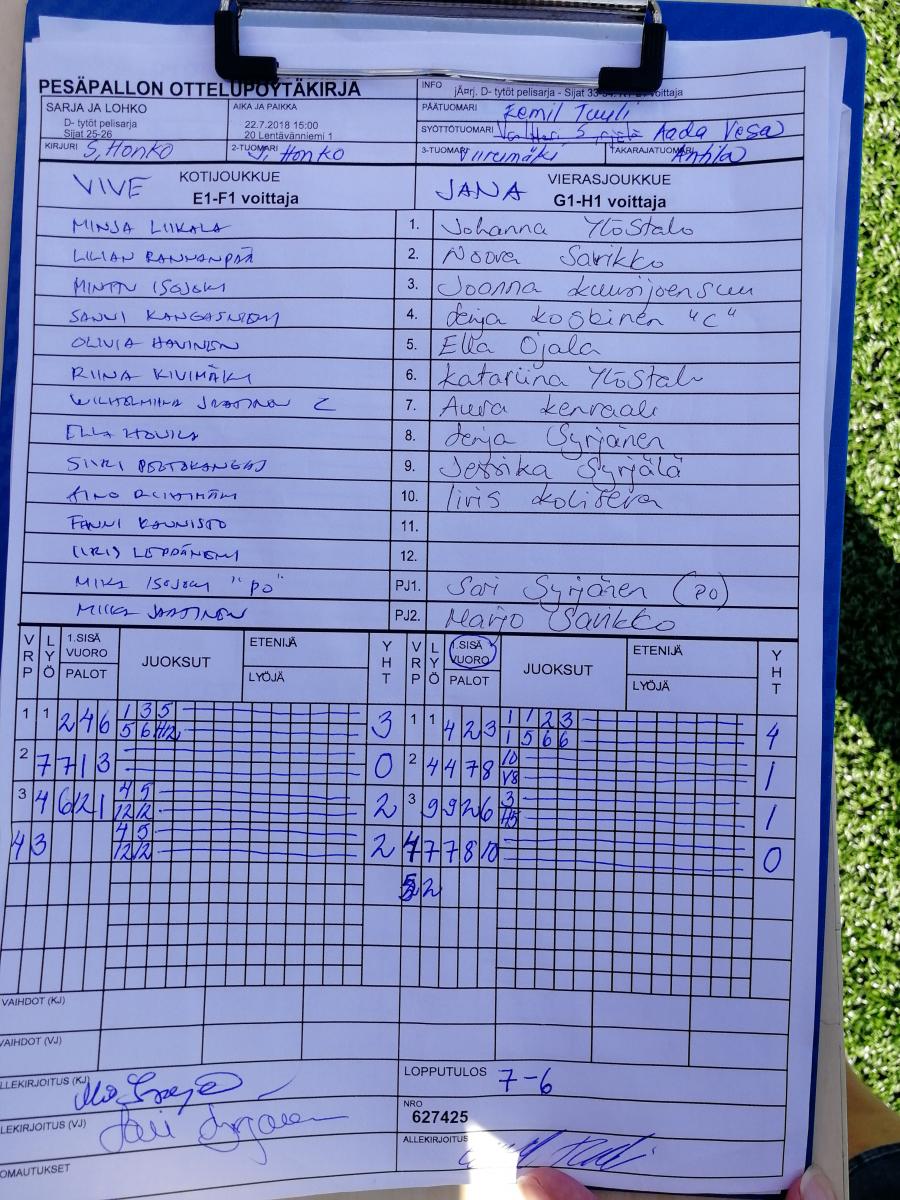 PESÄPALLON OTTELUPÖYTÄKIRJA
INFO jÄ¤rj. D- tytöt pelisarja - Sijat voittaja
SARJA JA LOHKO
D- tytöt pelisarja
Sijat 25-26
AIKA JA PAIKKA
22.7.2018 15:00
20 Lentävänniemi 1
PÄÄTUOMARI Eemil Tuuli
SYÖTTÖTUOMARI Aada Vesa
KIRJURI S, Honko
2-TUOMARI J, Honko
3-TUOMARI Viiremäki
TAKARAJATUOMARI Anttila
VIVE KOTIJOUKKUE
E1-F1 voittaja
JANA VIERASJOUKKUE
G1-H1 voittaja
MINJA LIIKALA 1. Johanna Ylöstalo
LILIAN RANNANPÄÄ 2. Noora Sarikko
MINTTU ISOJOKI 3. Joanna Kuurijoensuu
SANNI KANGASNIEMI 4. Jenja Koskinen "C"
OLIVIA HAVINEN 5. Ella Ojala
RIINA KIVIMÄKI 6. Katariina Ylöstalo
WILHELMIINA JAATINEN C 7. Aura Kenraali
ELLA HONKA 8. Jenja Syrjänen
SIIRI PELTOKANGAS 9. Jessika Syrjälä
AINO 10. Iiris
FANNI KAUNISTO 11.
IIRIS LEPPÄNIEMI 12.
MIKA ISOJOKI "PO" PJ1. Sari Syrjänen (PO)
MIIKA JAATINEN PJ2. Marjo Sarikko
VRP LYÖ 1.SISÄ VUORO PALOT JUOKSUT ETENIJÄ LYÖJÄ YHT VRP LYÖ 1.SISÄ VUORO PALOT JUOKSUT ETENIJÄ LYÖJÄ YHT
1 1 2 4 6 1 3 5 3 1 1 4 2 3 1 1 2 3 4
5 6 1 5 6 6
2 7 7 1 3 0 2 4 4 7 8 10 1
3 4 6 2 1 4 5 2 3 9 9 2 6 3 1
12 12
4 3 4 5 2 4 7 7 8 10 0
12 12
5 2
VAIHDOT (KJ)
VAIHDOT (VJ)
LLEKIRJOITUS (KJ)
LOPPUTULOS 7-6
LEKIRJOITUS (VJ) Sari Syrjänen
NRO
627425
ALLEKIRJOITUS
OMAUTUKSET